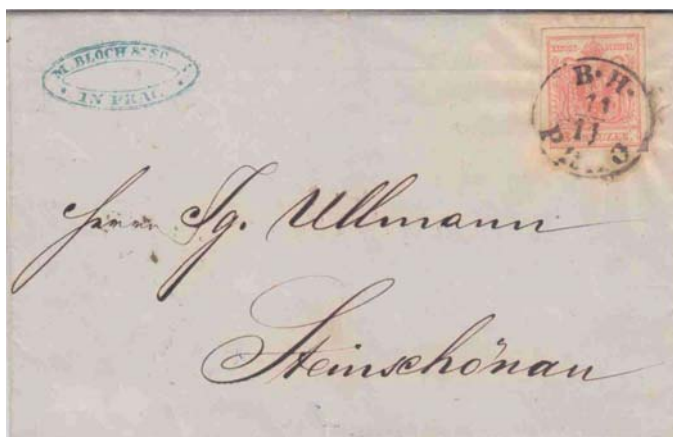 M. BLOCH &
IN PRAG
B. H.
11
11
PRAG
Herrn Ig. Ullmann
Steinschönau